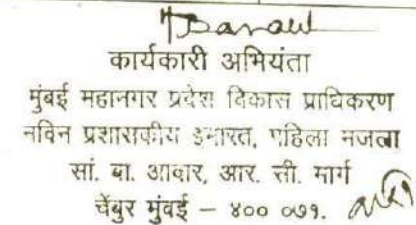 कार्यकारी अभियंता
मुंबई महानगर प्रदेश विकास प्राधिकरण
नविन प्रशासकीय इमारत, पहिला मजला
सां. बा. आवार, आर. सी. मार्ग
चेंबुर मुंबई – ४०० ०७१.